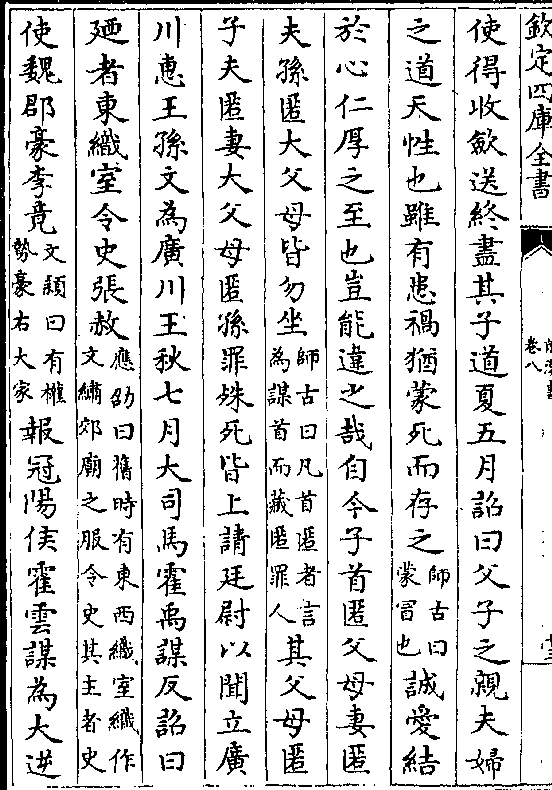 欽定四庫全書
卷八
使得收斂送終盡其子道夏五月詔曰父子之親夫婦
之道天性也雖有患禍猶蒙死而存之師古曰蒙冒也誠愛結
於心仁厚之至也豈能違之哉自今子首匿父母妻匿
夫孫匿大父母皆勿坐師古曰凡首匿者言為謀首而藏匿罪人其父母匿
子夫匿妻大父母匿孫罪殊死皆上請廷尉以聞立廣
川惠王孫文為廣川王秋七月大司馬霍禹謀反詔曰
廼者東織室令史張赦應劭曰舊時有東西織室織作文繡郊廟之服令史其主者史
使魏郡豪李竟文頴曰有權勢豪右大家報冠陽侯霍雲謀為大逆